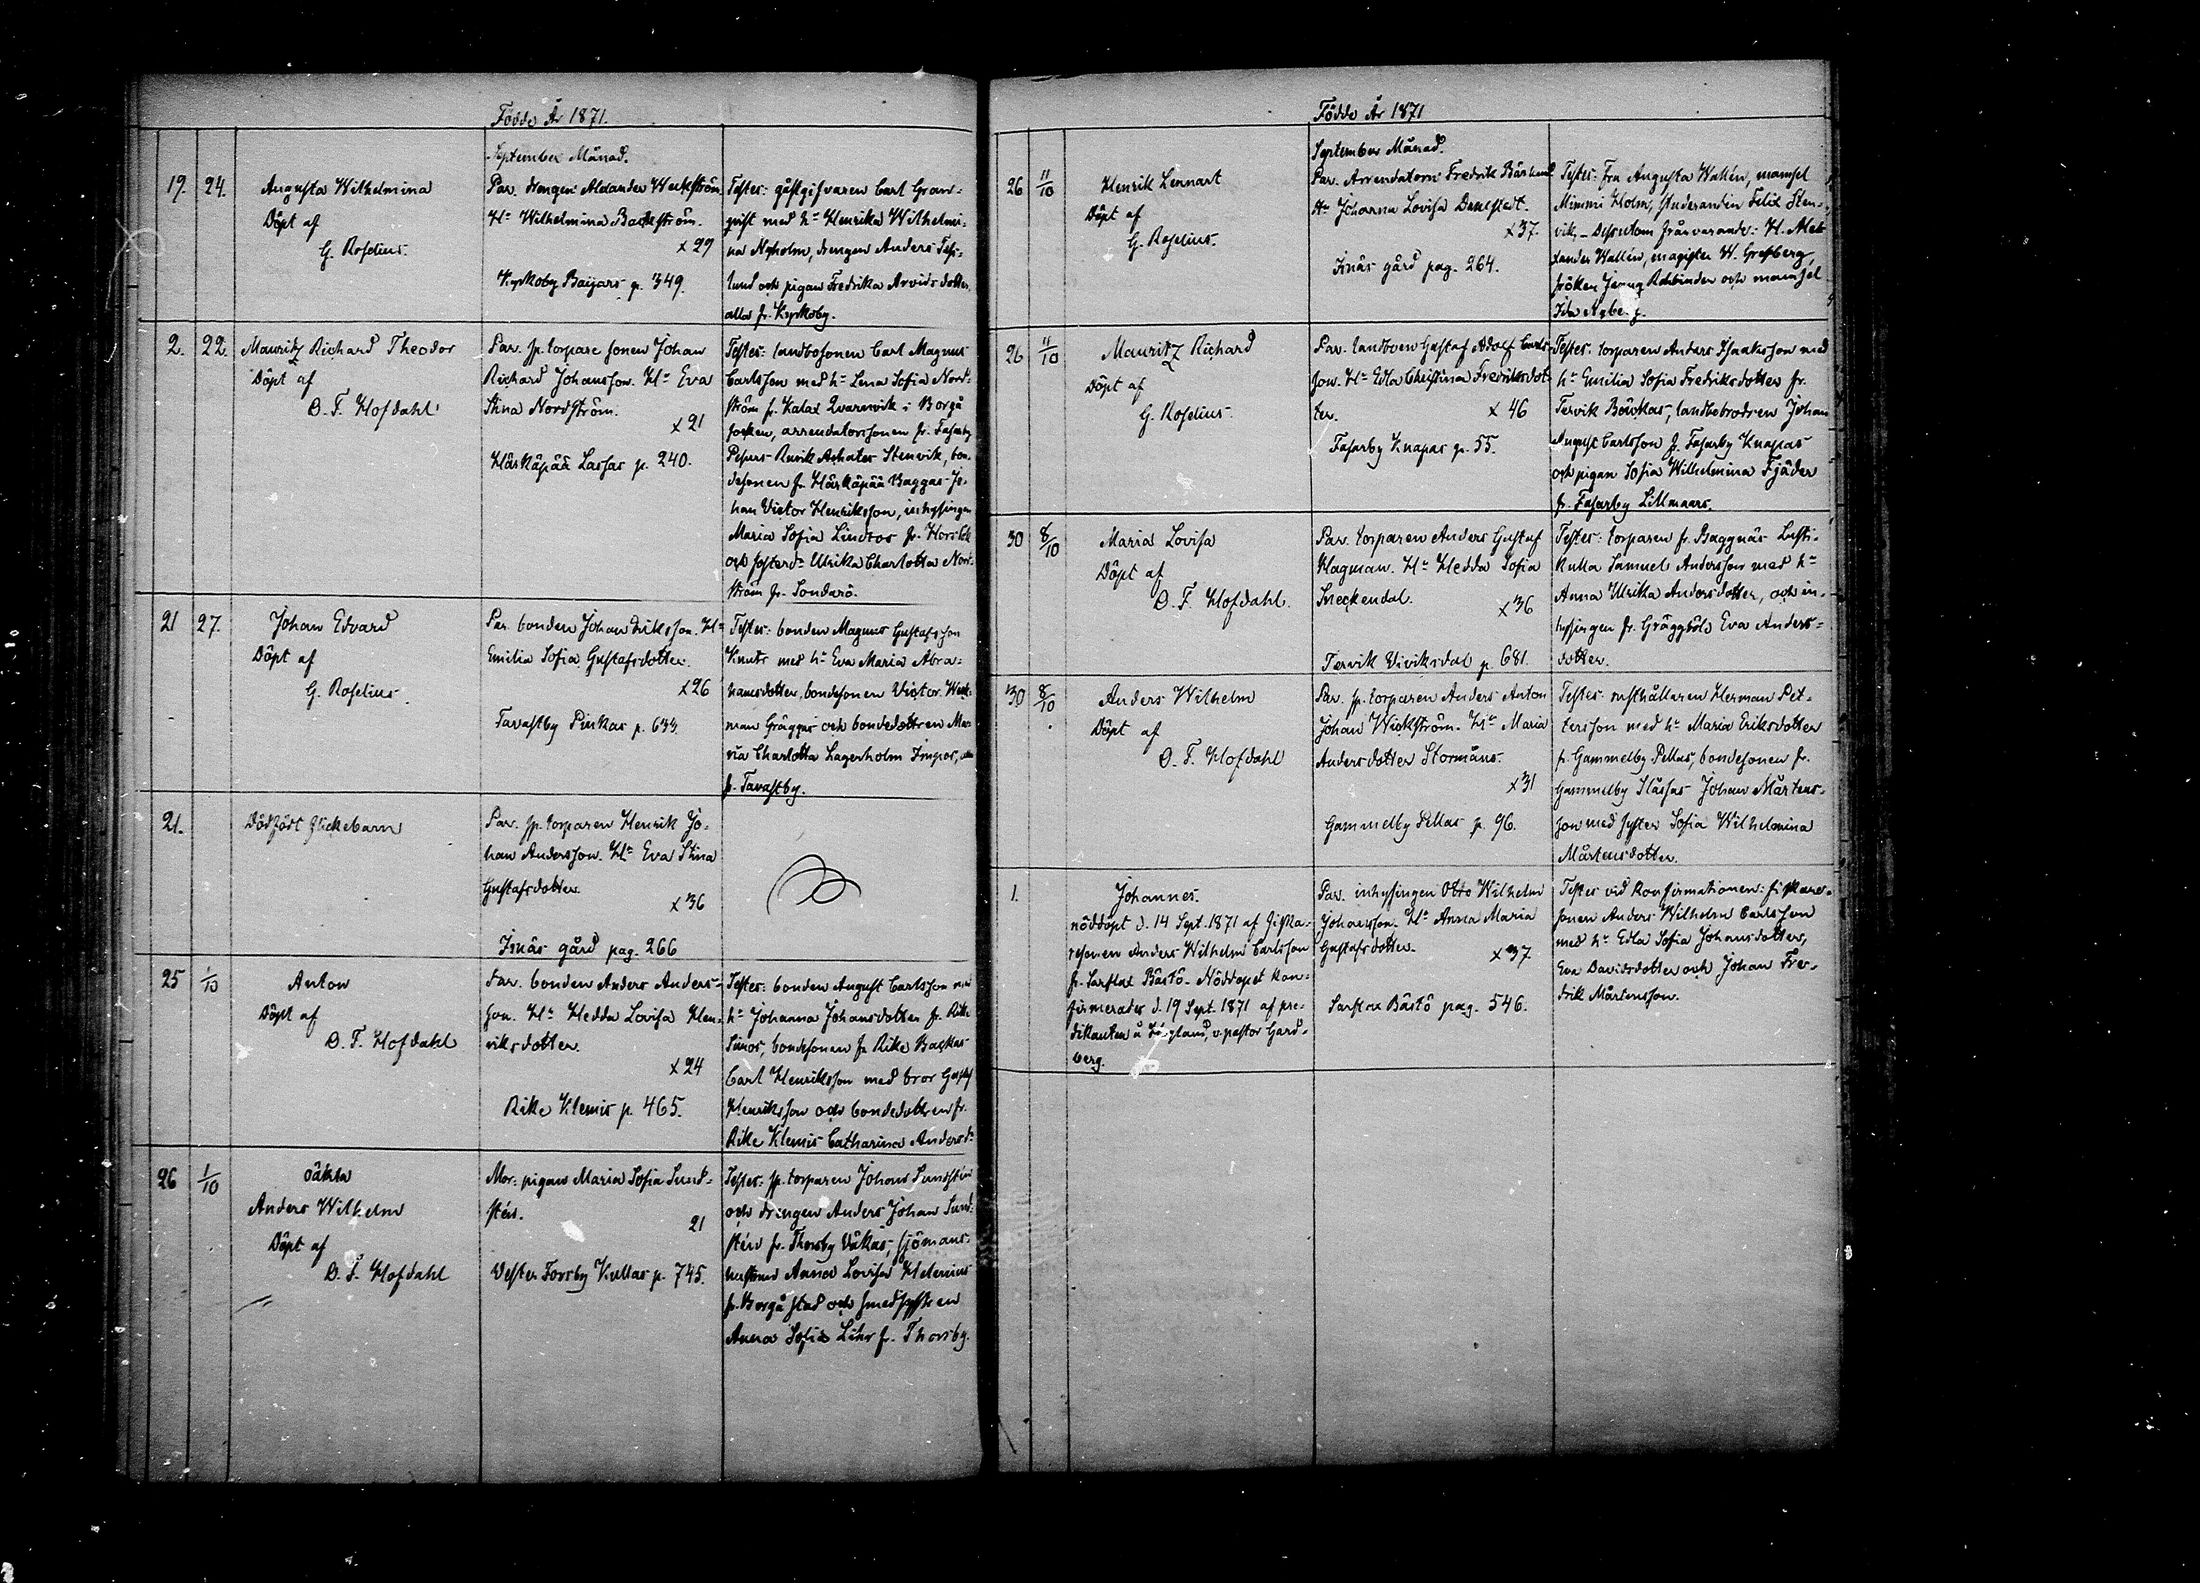 Födde År 1871.
September Månad.
19. 24. Augusta Wilhelmina
Döpt af
G. Roselius.
Par. drengen Alexander Weckström
H:u Wilhelmina Backström.
x 29
Kyrkoby Baijars p. 349.
Testes: gästgifvaren Carl Gran-
qvist med h:u Henrika Wilhelmi-
na Nyholm, drengen Anders
lund och pigan Fredrika Arvidsdotter,
alla fr. Kyrkoby.
2. 22. Mauritz Richard Theodor
Döpt af
O. F. Hofdahl
Par. sp. torpare sonen Johan
Richard Johansson. H:u Eva
Stina Nordström.
x 21
Härkäpää Lassas p. 240.
Testes: landbosonen Carl Magnus
Carlsson med h:u Lena Sofia Nord-
ström fr. Kalax Qvarnvik i Borgå
socken, arrendatorssonen fr. Fasarby
Pepers Rurik Achates Stenvik, bon-
desonen fr. Härkäpää Baggas Jo-
han Victor Henriksson, inhysingen
Maria Sofia Lindros fr.
och systerd:r Ulrika Charlotta Nord-
ström fr. Sondarö.
21 27. Johan Edvard
Döpt af
G. Roselius
Par. bonden Johan Eriksson. H:u
Emilia Sofia Gustafsdotter.
x 26
Tavastby Pinkas p. 633.
Testes: bonden Magnus Gustafsson
Knuts med h:u Eva Maria Abra-
hamsdotter, bondesonen Victor Weck-
man Gräggas och bondedottren Ma-
ria Charlotta Lagerholm Impos, alla
fr. Tavastby.
21. Dödfödt flickebarn
Par. sp. torparen Henrik Jo-
han Andersson. H:u Eva Stina
Gustafsdotter
x 36
Isnäs gård pag. 266
25 1/10 Anton
Döpt af
O. F. Hofdahl
Par. bonden Anders Anders-
son. H:u Hedda Lovisa Hen-
riksdotter.
x 24
Rike Klemis p. 465.
Testes: bonden August Carlsson med
h:u Johanna Johansdotter fr. Rike
Simos, bondesonen fr. Rike Backas
Carl Henriksson med bror Gustaf
Henriksson och bondedottren fr.
Rike Klemis Catharina Andersd:r
26 1/10 oäkta
Anders Wilhelm
Döpt af
O. F. Hofdahl
Mor: pigan Maria Sofia Sund-
stén.
21
Vester Forsby Kullas p. 745.
Testes: sp. torparen Johan Sundstén
och drengen Anders Johan Sund-
stén fr. Thorsby Väkas, sjömans-
hustrun Anna Lovisa Helenius
fr. Borgå stad och smedsystren
Anna Sofia Lihr fr. Thorsby.
Födde År 1871
September Månad.
26 11/10 Henrik Lennart
Döpt af
G. Roselius.
Par. Arrendatorn Fredrik Bäcklund
H:u Johanna Lovisa Danstedt.
x 37.
Isnäs gård pag. 264.
Testes: Fru Augusta Wallén, mamsel
Mimmi Holm, Studeranden Felix Sten-
vik, - Dessutom frånvarande: H. Alex-
ander Wallén, magister W. Grefberg,
fröken Jenny Rehbinder och mamsel
Ida Nyberg.
26 11/10 Mauritz Richard
Döpt af
G. Roselius.
Par. landboen Gustaf Adolf Carls-
son. H:u Edla Christina Fredriksdot-
ter.
x 46
Fasarby Knapas p. 55.
Testes: torparen Anders Isaaksson med
h:u Emilia Sofia Fredriksdotter fr.
Tervik Böckas, landbobrodren Johan
August Carlsson fr. Fasarby Knapas
och pigan Sofia Wilhelmina Fjäder
fr. Fasarby Lillmaars.
30 8/10 Maria Lovisa
Döpt af
O. F. Hofdahl.
Par. torparen Anders Gustaf
Hagman. H:u Hedda Sofia
Sneckendal.
x 36
Tervik Viviksdal p. 681.
Testes: torparen fr. Baggnäs Lusti-
kulla Samuel Andersson med h:u
Anna Ulrika Andersdotter, och in-
hysingen fr. Gräggböle Eva Anders-
dotter.
30 8/10 Anders Wilhelm
Döpt af
O. F. Hofdahl
Par. sp. torparen Anders Anton
Johan Wickström. H:u Maria
Andersdotter Stormåns.
x 31
Gammelby Pellas p. 96.
Testes: rusthållaren Herman Pet-
tersson med h:u Maria Eriksdotter
fr. Gammelby Pellas, bondesonen fr.
Gammelby Slässas Johan Mårtens-
son med syster Sofia Wilhelmina
Mårtensdotter.
1. Johannes.
nöddöpt d. 14 Sept. 1871 af fiska-
resonen Anders Wilhelm Carlsson
fr. Sarflax Bästö. Nöddopet kon-
firmerades d. 19 Sept. 1871 af pre-
dikanten å Högland, v. pastor Gard-
berg.
Par. inhysingen Otto Wilhelm
Johansson. H:u Anna Maria
Gustafsdotter.
x 37
Sarflax Bästö pag. 546.
Testes vid konfirmationen: fiskare-
sonen Anders Wilhelm Carlsson
med h:u Edla Sofia Johansdotter,
Eva Davidsdotter och Johan Fre-
drik Mårtensson.